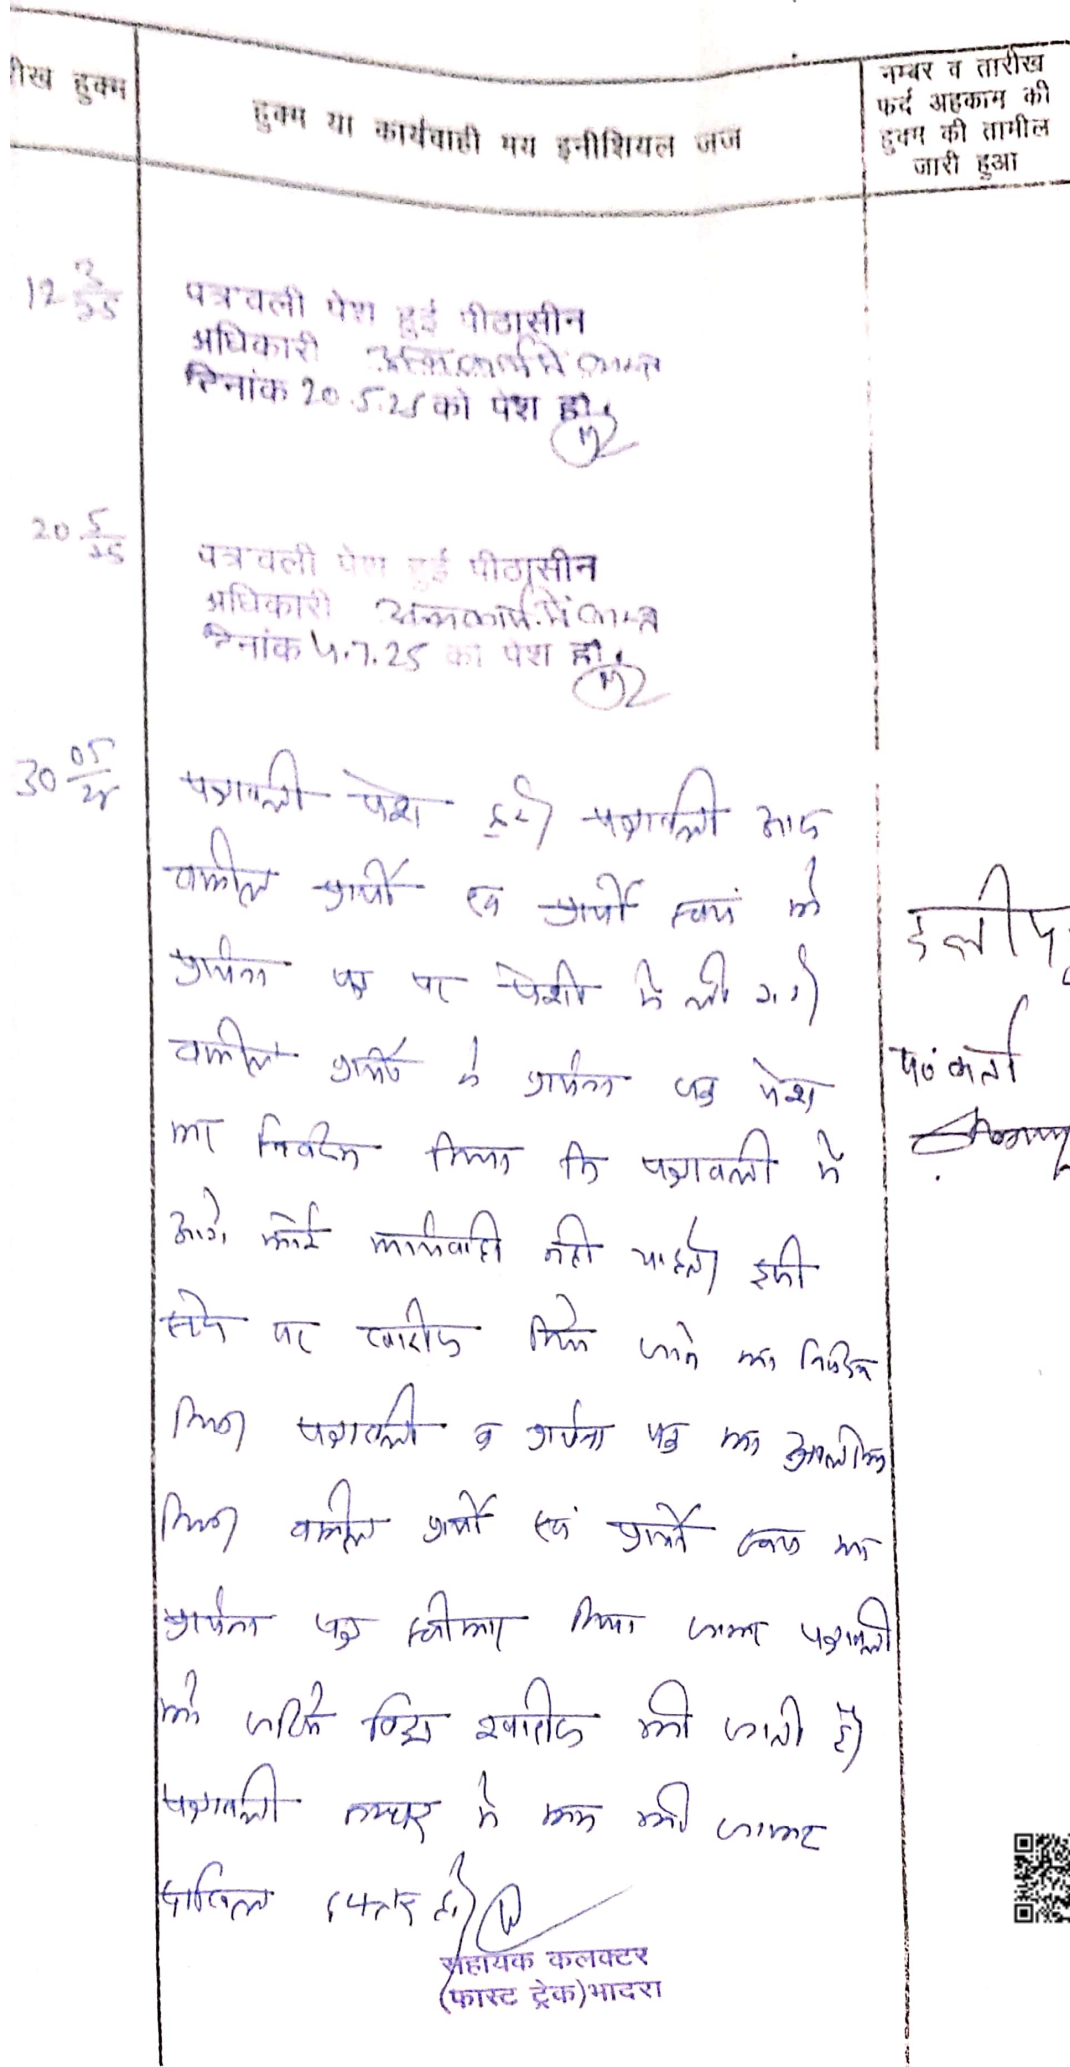 रीख हुक्म
हुक्म या कार्यवाही मय इनीशियल जज
नम्बर व तारीख
फर्द अहकाम की
हुक्म की तामील
जारी हुआ
12 3/25
पत्रावली पेश हुई पीठासीन
अधिकारी अन्य कार्य में व्यस्त
दिनांक 20.5.25 को पेश हो।
20 5/25
पत्रावली पेश हुई पीठासीन
अधिकारी अन्य कार्य में व्यस्त
दिनांक 4.7.25 को पेश हो।
30 05/25
पत्रावली पेश हुई। पत्रावली आज
वकील प्रार्थी एवं प्रार्थी स्वयं के
प्रार्थना पत्र पर पेशी में ली गई।
वकील प्रार्थी ने प्रार्थना पत्र पेश
कर निवेदन किया कि पत्रावली में
आगे कोई कार्यवाही नहीं चाहते। इसी
स्टेज पर खारीज किये जाने का निवेदन
किया। पत्रावली व प्रार्थना पत्र का अवलोकन
किया। वकील प्रार्थी एवं प्रार्थी स्वयं का
प्रार्थना पत्र स्वीकार किया जाकर पत्रावली
को खारीज की जाती है।
पत्रावली नम्बर से कम की जाकर
दाखिल दफ्तर हो।
सहायक कलक्टर
(फास्ट ट्रेक)भादरा